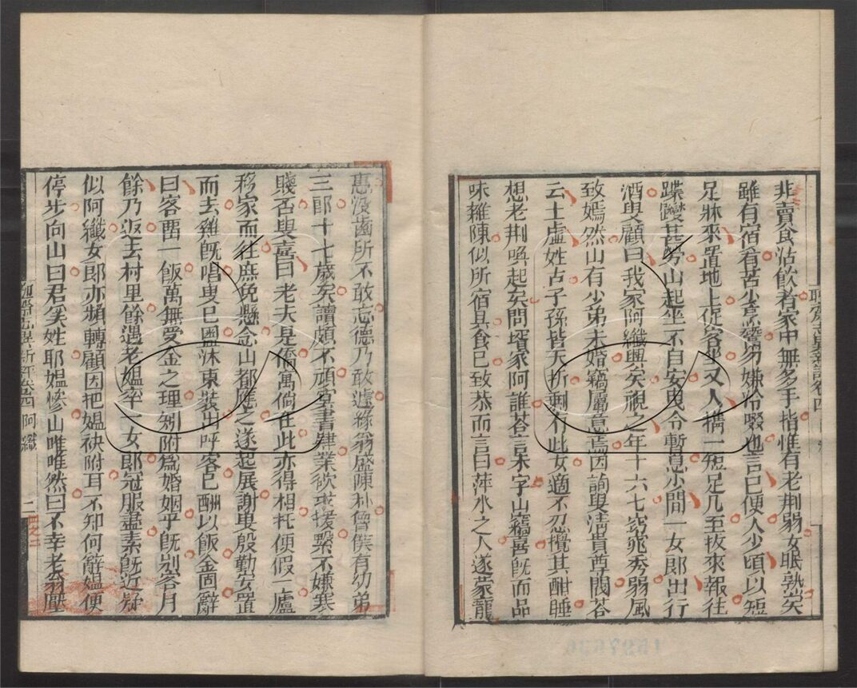 非賣食沽飲者家中無多手指惟有老荆弱女眠熟矣
雖有宿肴苦少烹鬻勿嫌冷啜也言已便入少頃以短
足牀來置地上促客坐又入攜一短足几至拔來報往
蹀躞甚勞山起坐不自安曳令暫息少間一女郎出行
酒叟顧曰我家阿纖興矣視之年十六七窈窕秀弱風
致嫣然山有少弟未婚竊屬意焉因詢叟清貫尊閥荅
云士虛姓古子孫皆夭折剩有此女適不忍攪其酣睡
想老荆喚起矣問壻家阿誰荅言未字山竊喜既而品
味雜陳似所宿具食已致恭而言曰萍水之人遂蒙寵
惠沒齒所不敢忘緣翁盛德乃敢遽陳朴魯僕有幼弟
三郎十七歲矣讀書肄業頗不頑冥欲求援繫不嫌寒
賤否叟喜曰老夫在此亦是僑寓倘得相托便假一廬
移家而往庶免懸念山都應之遂起展謝叟殷勤安置
而去雞既唱叟已出呼客盥沐束裝已酬以飯金固辭
曰客留一飯萬無受金之理矧附爲婚姻乎既別客月
餘乃返去村里餘遇老媼率一女郎冠服盡素既近疑
似阿纖女郎亦頻轉顧因把媼袂附耳不知何辭媼便
停步向山曰君奚姓耶山唯唯媼慘然曰不幸老翁壓
聊齋志異新評卷四 阿纖 二